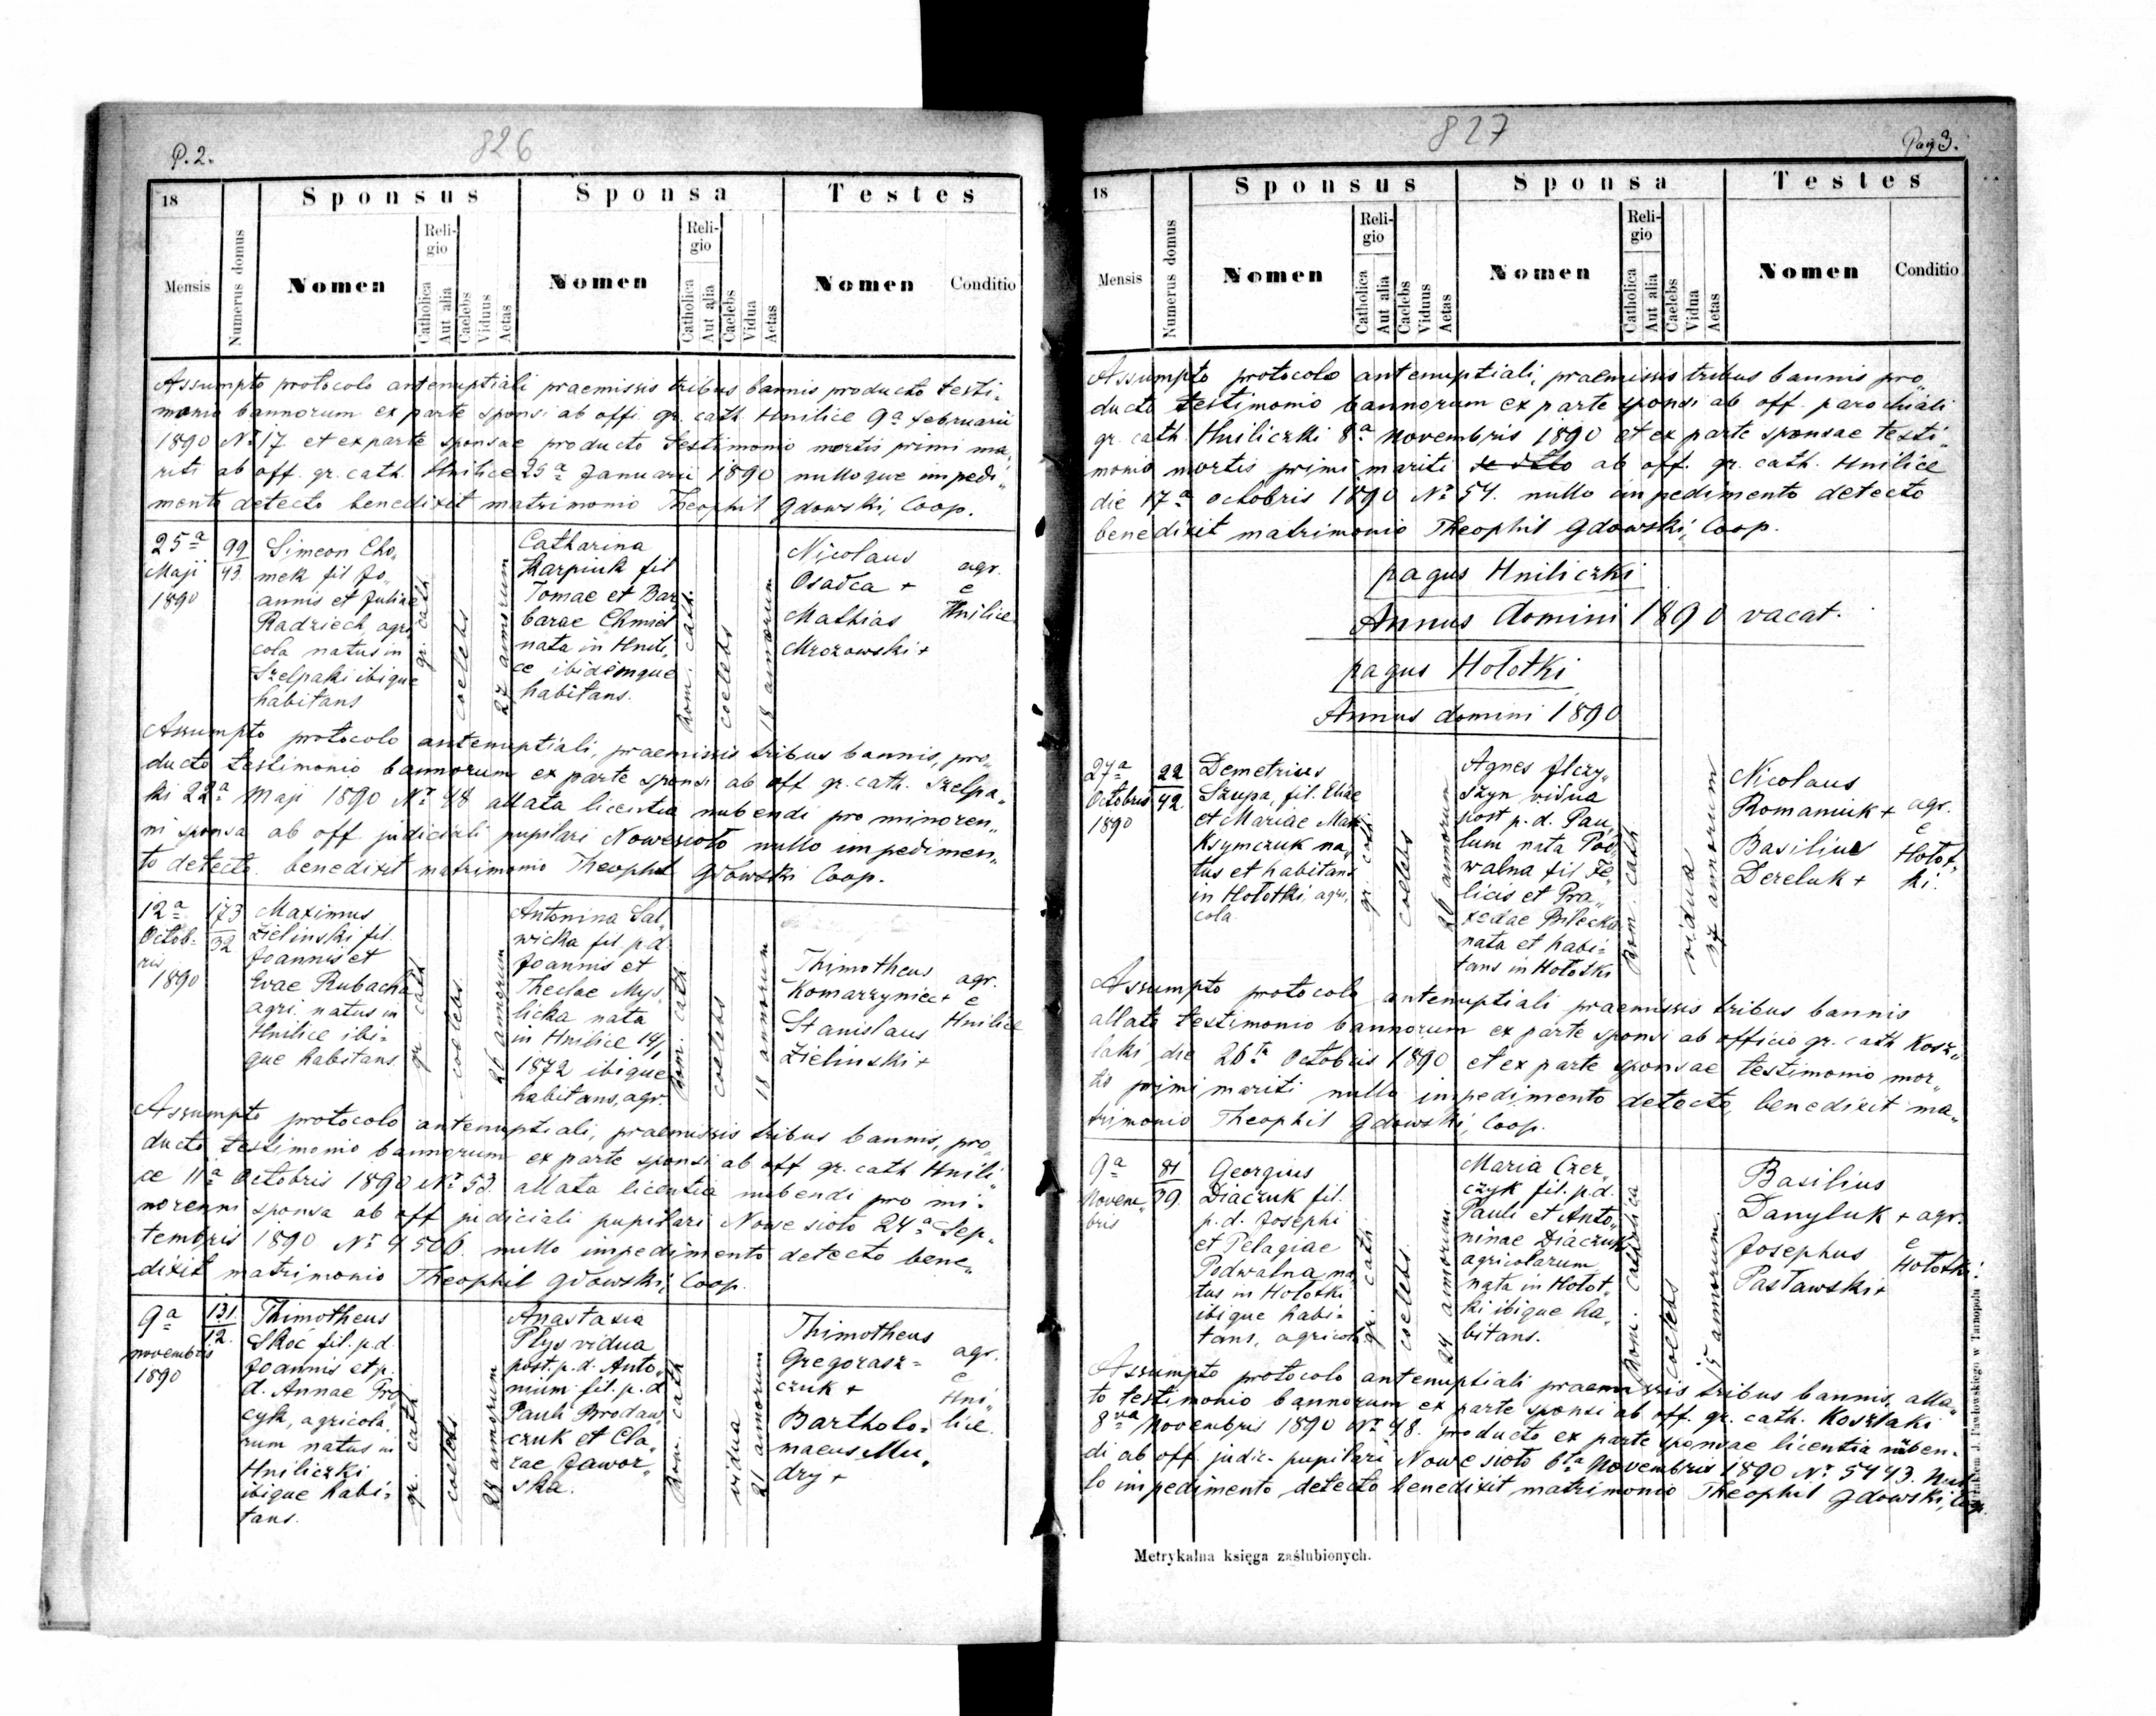 P. 2.
826
18
Mensis
Numerus domus
Sponsus
Nomen
Religio
Catholica
Aut alia
Caelebs
Viduus
Aetas
Sponsa
Nomen
Religio
Catholica
Aut alia
Caelebs
Vidua
Aetas
Testes
Nomen
Conditio
Assumpto protocolo antenuptiali praemissis tribus bannis producto testi„
monio bannorum ex parte sponsi ab offi. gr. cath. Hnilice 9a februarii
1890 No 17 et ex parte sponsae producto testimonio mortis primi ma„
riti ab off. gr. cath. Hnilice 25a Januarii 1890 nulloque impedi„
mento detecto benedixit matrimonio Theophil Gdowski, Coop.
25a
Maji
1890
99
43.
Simeon Cho„
mek fil Jo„
annis et Juliae
Radziech agri
cola natus in
Szelpaki ibique
habitans
gr. cath.
coelebs
27 annorum
Catharina
Karpiuk fil
Tomae et Bar
barae Chmiel
nata in Hnili„
ce ibidemque
habitans.
Rom. cath.
coelebs
18 annorum
Nicolaus
Osadca +
Mathias
Mrozowski +
agr.
e
Hnilice
Assumpto protocolo antenuptiali, praemissis tribus bannis, pro„
ducto testimonio bannorum ex parte sponsi ab off gr. cath. Szelpa„
ki 22a Maji 1890 No 48 allata licentia nubendi pro minoren„
ni sponsa ab off judiciali pupilari Nowesioło nullo impedimen„
to detecto. benedixit matrimonio Theophil Gdowski Coop.
12a
Octob-
ris
1890
173
32
Maximus
Zielinski fil.
Joannis et
Evae Rubacha
agri. natus in
Hnilice ibi=
que habitans.
gr. cath
coelebs.
26 annorum
Antonina Sal„
wicka fil. p.d
Joannis et
Theclae Mys„
licka nata
in Hnilice 14/1
1872 ibique
habitans, agr.
Rom. cath
coelebs
18 annorum
Thimotheus
Komarzyniec +
Stanislaus
Zielinski +
agr.
e
Hnilice
Assumpto protocolo antenuptiali, praemissis tribus bannis, pro„
ducto testimonio bannorum ex parte sponsi ab off gr. cath Hnili„
ce 11a Octobris 1890 No 53. allata licentia nubendi pro mi=
norenni sponsa ab off judiciali pupilari Nowe sioło 24a Sep-
tembris 1890 No 4506. nullo impedimento detecto bene„
dixit matrimonio Theophil Gdowski, Coop.
9a
novembris
1890
131.
12.
Thimotheus
Skoć fil. p.d.
Joannis et p.
d. Annae Pro„
cyk, agricola„
rum natus in
Hniliczki
ibique habi=
tans.
gr. cath
coelebs.
28 annorum
Anastasia
Plys vidua
post. p.d. Anto„
nium fil. p.d
Pauli Brodaw„
czuk et Cla„
rae Jawor„
ska.
Rom. cath
vidua
21 annorum
Thimotheus
Gregorasz=
czuk +
Bartholo=
maeus Mu„
dry +
agr.
e
Hni„
lice.
827
Pag 3.
18
Mensis
Numerus domus
Sponsus
Nomen
Religio
Catholica
Aut alia
Caelebs
Viduus
Aetas
Sponsa
Nomen
Religio
Catholica
Aut alia
Caelebs
Vidua
Aetas
Testes
Nomen
Conditio
Assumpto protocolo antenuptiali, praemissis tribus bannis pro„
ducto testimonio bannorum ex parte sponsi ab off. parochiali
gr. cath. Hniliczki 8a Novembris 1890 et ex parte sponsae testi„
monio mortis primi mariti ab off. gr. cath. Hnilice
die 17a octobris 1890 No 54. nullo impedimento detecto
benedixit matrimonio Theophil Gdowski, Coop.
pagus Hniliczki
Annus domini 1890 vacat.
pagus Hołotki
Annus domini 1890
27a
Octobris
1890
22
42.
Demetrius
Szupa, fil. Eliae
et Mariae Mak
Ksymczuk na„
tus et habitans
in Hołotki, agri„
cola.
gr. cath
coelebs
26 annorum
Agnes Ilczy„
szyn vidua
post p.d. Pau„
lum nata Pod„
walna fil Fe„
licis et Pra„
xedae Bilecka
nata et habi=
tans in Hołotki
Rom. cath
vidua
37 annorum
Nicolaus
Romaniuk +
Basilius
Dereluk +
agr.
e
Hołot„
ki.
Assumpto protocolo antenuptiali praemissis tribus bannis
allato testimonio bannorum ex parte sponsi ab officio gr. cath Kosz„
laki die 26ta Octobris 1890 et ex parte sponsae testimonio mor„
tis primi mariti nullo impedimento detecto, benedixit ma„
trimonio Theophil Gdowski, Coop.
9a
Novem„
bris
81
39.
Georgius
Diaczuk fil.
p.d. Josephi
et Pelagiae
Podwalna na„
tus in Hołotki
ibique habi=
tans, agricola
gr. cath.
coelebs.
24 annorum
Maria Czer„
czyk fil. p.d.
Pauli et Anto„
ninae Diaczuk
agricolarum
nata in Hołot„
ki ibique ha„
bitans.
Rom. catholica
coelebs
15 annorum.
Basilius
Danyluk +
Josephus
Pasławski +
agr.
e
Hołotki.
Assumpto protocolo antenuptiali praemissis tribus bannis, alla„
to testimonio bannorum ex parte sponsi ab off. gr. cath. Koszlaki
8va Novembris 1890 No 48. producto ex parte sponsae licentia nuben-
di ab off. judic. pupilari Nowe sioło 6ta Novembris 1890 No 5443. Nul
lo impedimento detecto benedixit matrimonio Theophil Gdowski, Coop.
Metrykalna księga zaślubionych.
J. Pawłowskiego w Tarnopolu